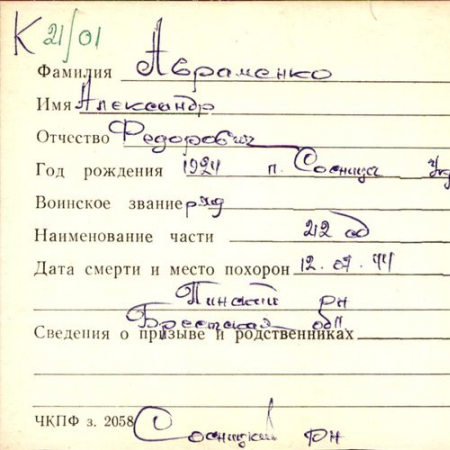 К 21/01
Фамилия Авраменко
Имя Александр
Отчество Федорович
Год рождения 1924 п. Сосница
Воинское звание ряд
Наименование части 212 сд
Дата смерти и место похорон 12.07.44
Пинский рн
Брестская обл
Сведения о призыве и родственниках
ЧКПФ з. 2058 Сосницкий рн